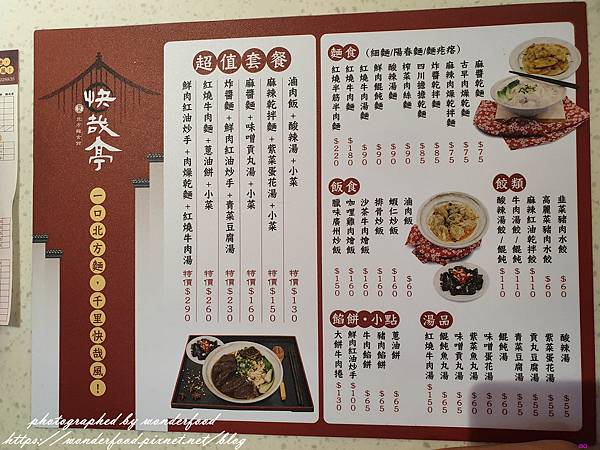 快哉亭
一口北方麵，千里快哉風！
超值套餐
滷肉飯+酸辣湯+小菜 特價$130
麻辣乾拌麵+紫菜蛋花湯+小菜 特價$150
麻醬麵+味噌貢丸湯+小菜 特價$160
炸醬麵+鮮肉紅油炒手+青菜豆腐湯 特價$230
紅燒牛肉麵+蔥油餅+小菜 特價$260
鮮肉紅油炒手+肉燥乾麵+紅燒牛肉湯 特價$290
麵食（細麵/陽春麵/麵疙瘩）
麻醬乾麵 $75
古早肉燥乾麵 $75
麻辣肉燥乾拌麵 $85
炸醬乾拌麵 $85
四川擔擔麵 $85
榨菜肉絲麵 $95
酸辣湯麵 $90
鮮肉餛飩麵 $90
紅燒牛肉湯麵 $90
紅燒牛肉麵 $180
紅燒半筋半肉麵 $220
飯食
滷肉飯
蝦仁炒飯
排骨炒飯
沙茶牛肉燴飯
咖哩雞肉燴飯
臘味廣州炒飯 $150
餃類
韭菜豬肉水餃 $60
高麗菜豬肉水餃 $60
麻辣紅油乾拌餃 $110
牛肉湯餃/餛飩 $110
酸辣湯餃/餛飩 $110
餡餅・小點
蔥油餅 $65
豬肉餡餅 $65
牛肉餡餅 $65
鮮肉紅油炒手 $100
大餅牛肉捲 $130
湯品
酸辣湯 $55
紫菜蛋花湯 $55
貢丸豆腐湯 $55
青菜豆腐湯 $55
餛飩湯
味噌蛋花湯
紫菜魚丸湯
味噌貢丸湯
餛飩魚丸湯
紅燒牛肉湯 $150
photographed by wonderfood
https://wonderfood.pixnet.net/blog